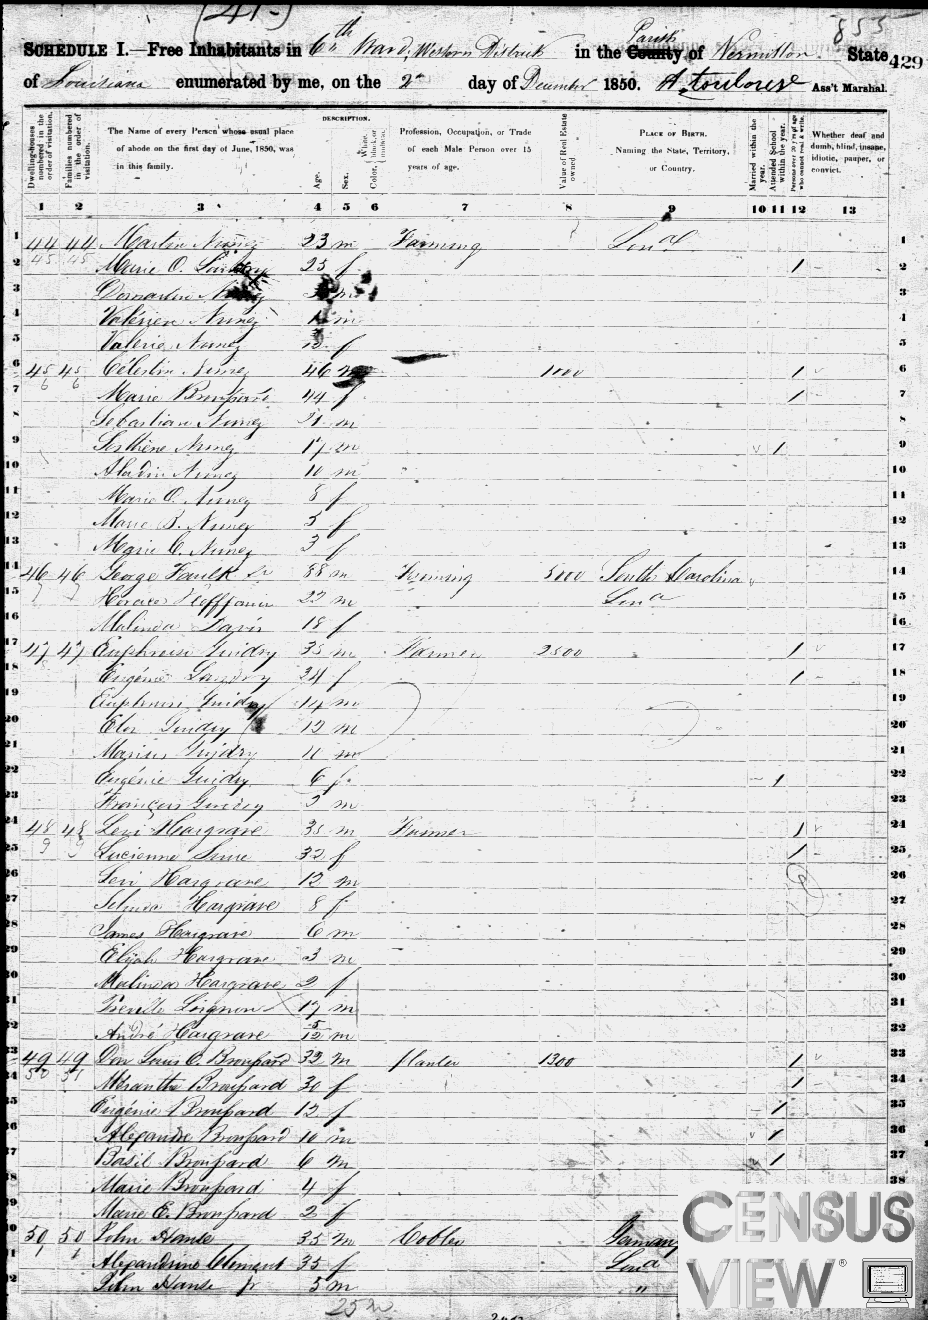 (41-)
853
SCHEDULE I.—Free Inhabitants in 6th Ward, Western District in the County Parish of Vermillion State 429
of Louisiana enumerated by me, on the 2d day of December 1850. Ass't Marshal.
Dwelling-houses numbered in the order of visitation.
Families numbered in the order of visitation.
The Name of every Person whose usual place of abode on the first day of June, 1850, was in this family.
DESCRIPTION.
Age.
Sex.
Color, White, black, or mulatto.
Profession, Occupation, or Trade of each Male Person over 15 years of age.
Value of Real Estate owned
PLACE OF BIRTH. Naming the State, Territory, or Country.
Married within the year.
Attended School within the year.
Persons over 20 y'rs of age who cannot read & write.
Whether deaf and dumb, blind, insane, idiotic, pauper, or convict.
1 2 3 4 5 6 7 8 9 10 11 12 13
1 44 44 Martin Nunez 23 m Farming Loua 1
2 45 45 Marie O. 25 f 1 2
3 Nunez m 3
4 Valérien Nunez m 4
5 Valerie Nunez f 5
6 45 45 Célestin Nunez 46 m 1000 1 6
7 6 6 Marie Broussard 44 f 1 7
8 Sebastian Nunez 21 m 8
9 Nunez 17 m 1 9
10 Nunez 10 m 10
11 Marie O. Nunez 8 f 11
12 Marie B. Nunez 5 f 12
13 Marie C. Nunez 3 f 13
14 46 46 George Faulk Sr 88 m Farming 5000 South Carolina 14
15 7 7 Horace Hoffpauir 22 m Loua 15
16 Malinda Davis 18 f 16
17 47 47 Euphrosin Guidry 35 m Farmer 2500 1 17
18 Eugénie Landry 34 f 1 18
19 Guidry 14 m 19
20 Guidry 12 m 20
21 Guidry 10 m 21
22 Eugénie Guidry 6 f 1 22
23 François Guidry 3 m 23
24 48 48 Levi Hargrave 35 m Farmer 1 24
25 9 9 Lucienne 32 f 1 25
26 Levi Hargrave 12 m 26
27 Hargrave 8 f 27
28 James Hargrave 6 m 28
29 Elijah Hargrave 3 m 29
30 Malinda Hargrave 2 f 30
31 17 m 31
32 André Hargrave 12 m 32
33 49 49 Don Louis C. Broussard 32 m planter 1300 1 33
34 50 51 Broussard 30 f 1 34
35 Eugénie Broussard 12 f 1 35
36 Alexandre Broussard 10 m 1 36
37 Basil Broussard 6 m 1 37
38 Marie Broussard 4 f 38
39 Marie E. Broussard 2 f
50 50 John Hanse 35 m Cobler Germany
1 1 Alexandrine Clement 35 f Loua
John Hanse Jr 5 m "
25 m
CENSUS
VIEW ®